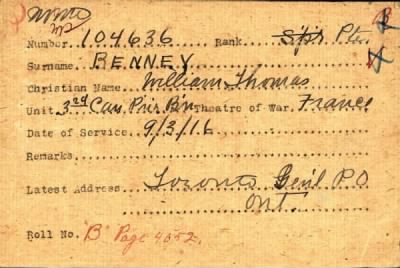 Number 104636 Rank Spr Pte.
Surname BENNEY
Christian Name William Thomas
Unit 3rd Can Pnr Bn Theatre of War. France
Date of Service 9/3/16
Remarks
Latest Address Toronto Gen'l P O
Ont.
Roll No. "B" Page 4052.